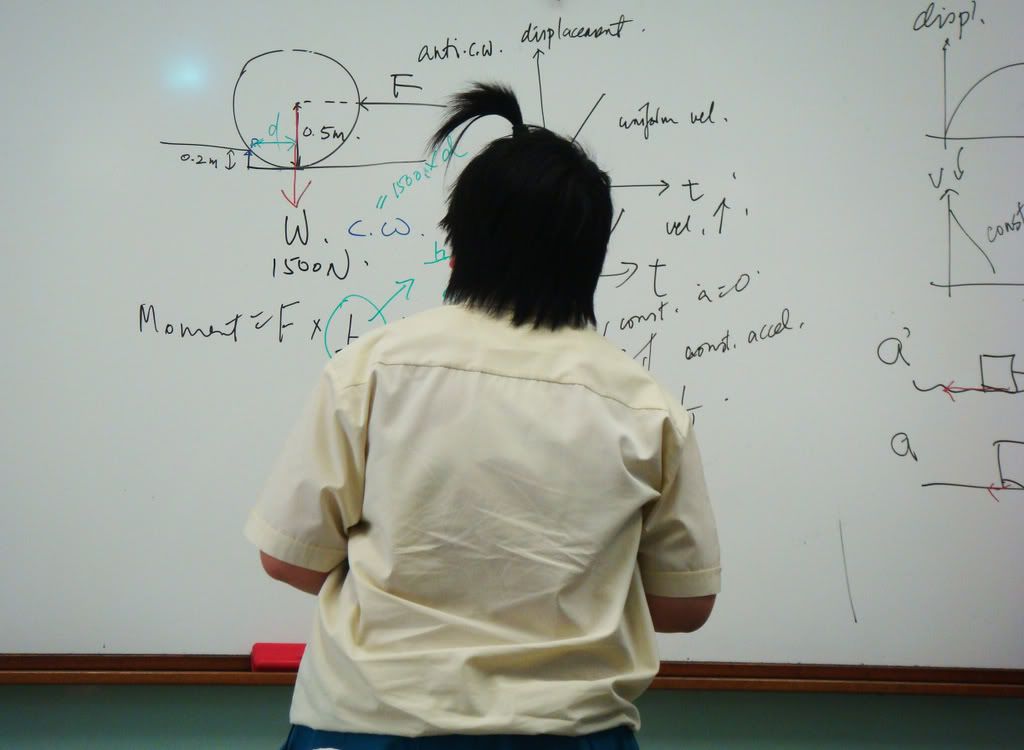 anti.c.w.
displacement.
F
d
0.5m.
0.2m
W.
1500N.
= 1500 × d
c.w.
Moment = F ×
uniform vel.
t
vel. ↑.
t
const. a=0
const. accel.
displ.
v
const
a'
a